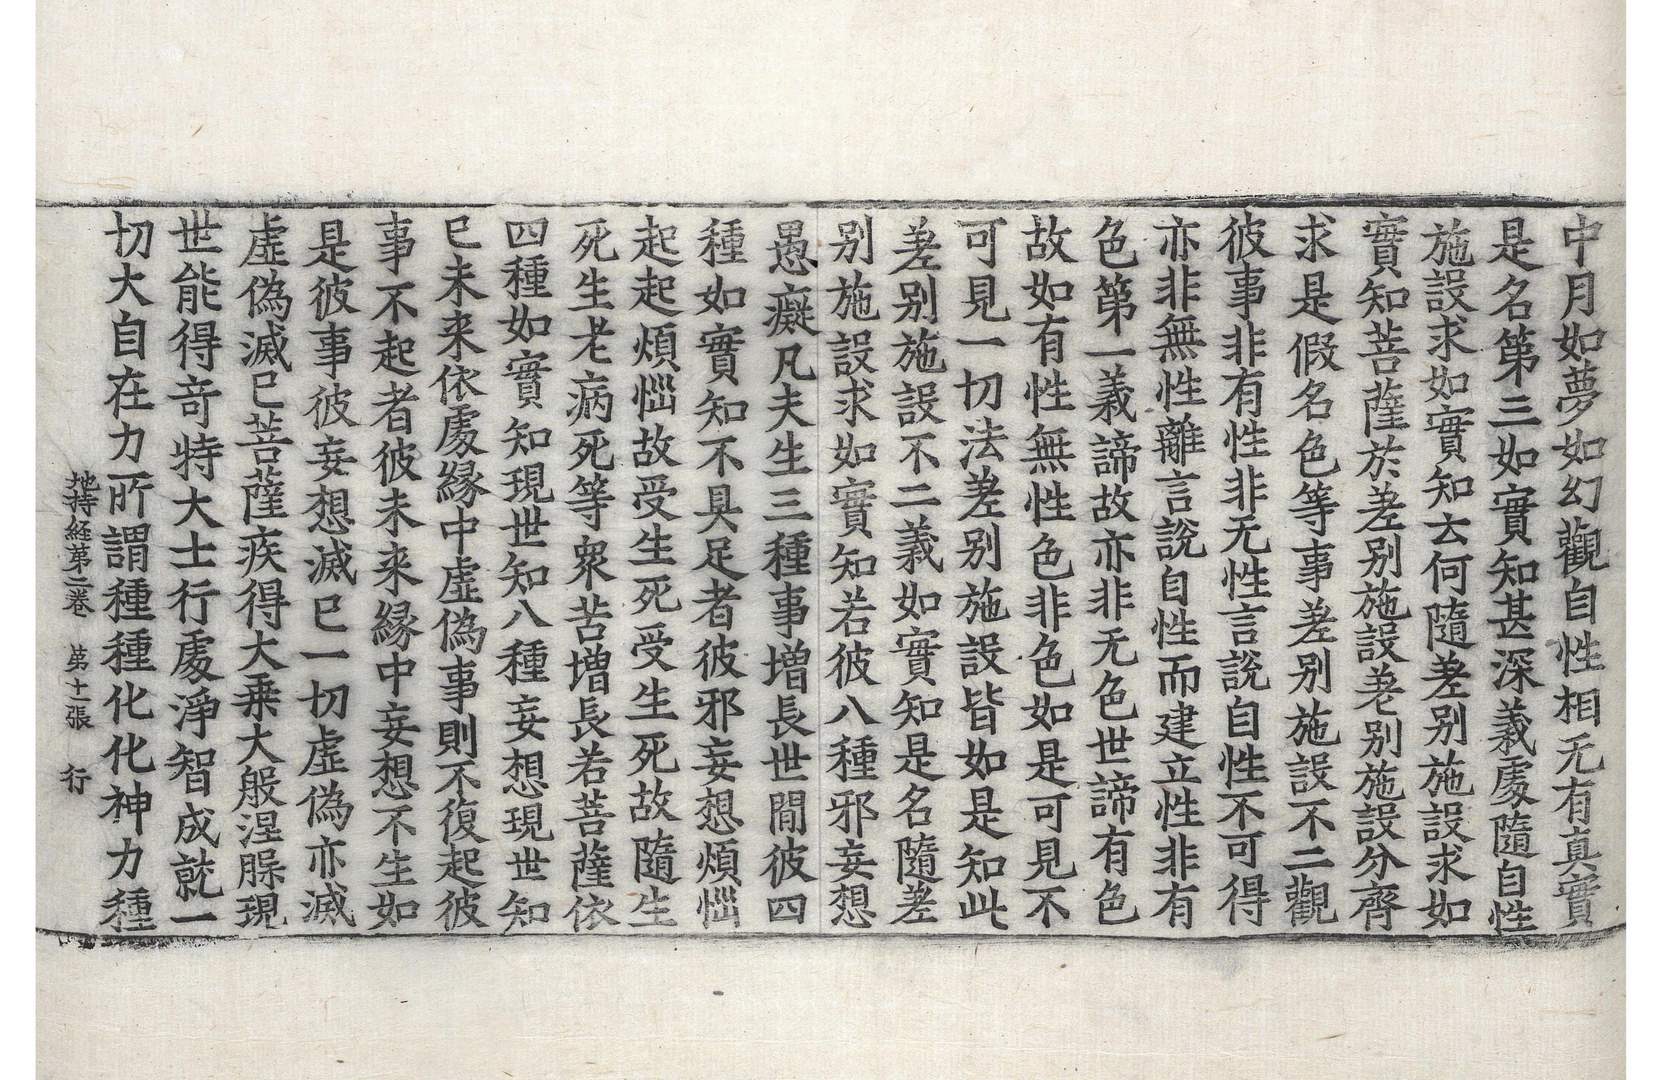 中月如夢如幻觀自性相无有真實
是名第三如實知甚深義處隨自性
施設求如實知云何隨差別施設求如
實知菩薩於差別施設差別施設分齊
求是假名色等事差別施設不二觀
彼事非有性非无性言說自性不可得
亦非無性離言說自性而建立性非有
色第一義諦故亦非无色世諦有色
故如有性無性色非色如是可見不
可見一切法差別施設皆如是知此
差別施設不二義如實知是名隨差
別施設求如實知若彼八種邪妄想
愚癡凡夫生三種事增長世間彼四
種如實知不具足者彼邪妄想煩惱
起起煩惱故受生死受生死故隨生
死生老病死等衆苦增長若菩薩依
四種如實知現世知八種妄想現世知
已未来依處緣中虛偽事則不復起彼
事不起者彼未来緣中妄想不生如
是彼事彼妄想滅已一切虛偽亦滅
虛偽滅已菩薩疾得大乘大般涅槃現
世能得竒特大士行處淨智成就一
切大自在力所謂種種化化神力種
地持経第二卷 第十二張 行